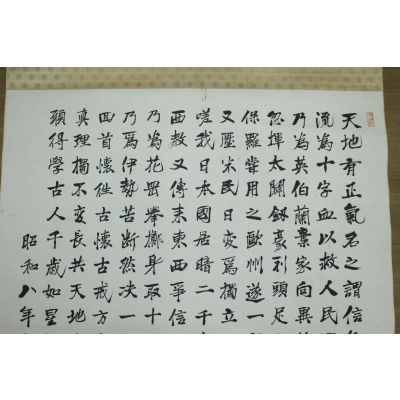 天地有正氣名之謂信
流為十字血以救人民
乃為英伯蘭棄家向異
忽揮太闢劔豪利頭足
保羅嘗用之歐州遂一
又壓米民日變為獨立
嗟我日本國居暗二千
西教又傳末東西爭信
乃為花岡擧擲身取十
乃為伊勢苦断然决一
回首懷往古懷古戒方
真理獨不変長共天地
願得學古人千歳如星
昭和八年